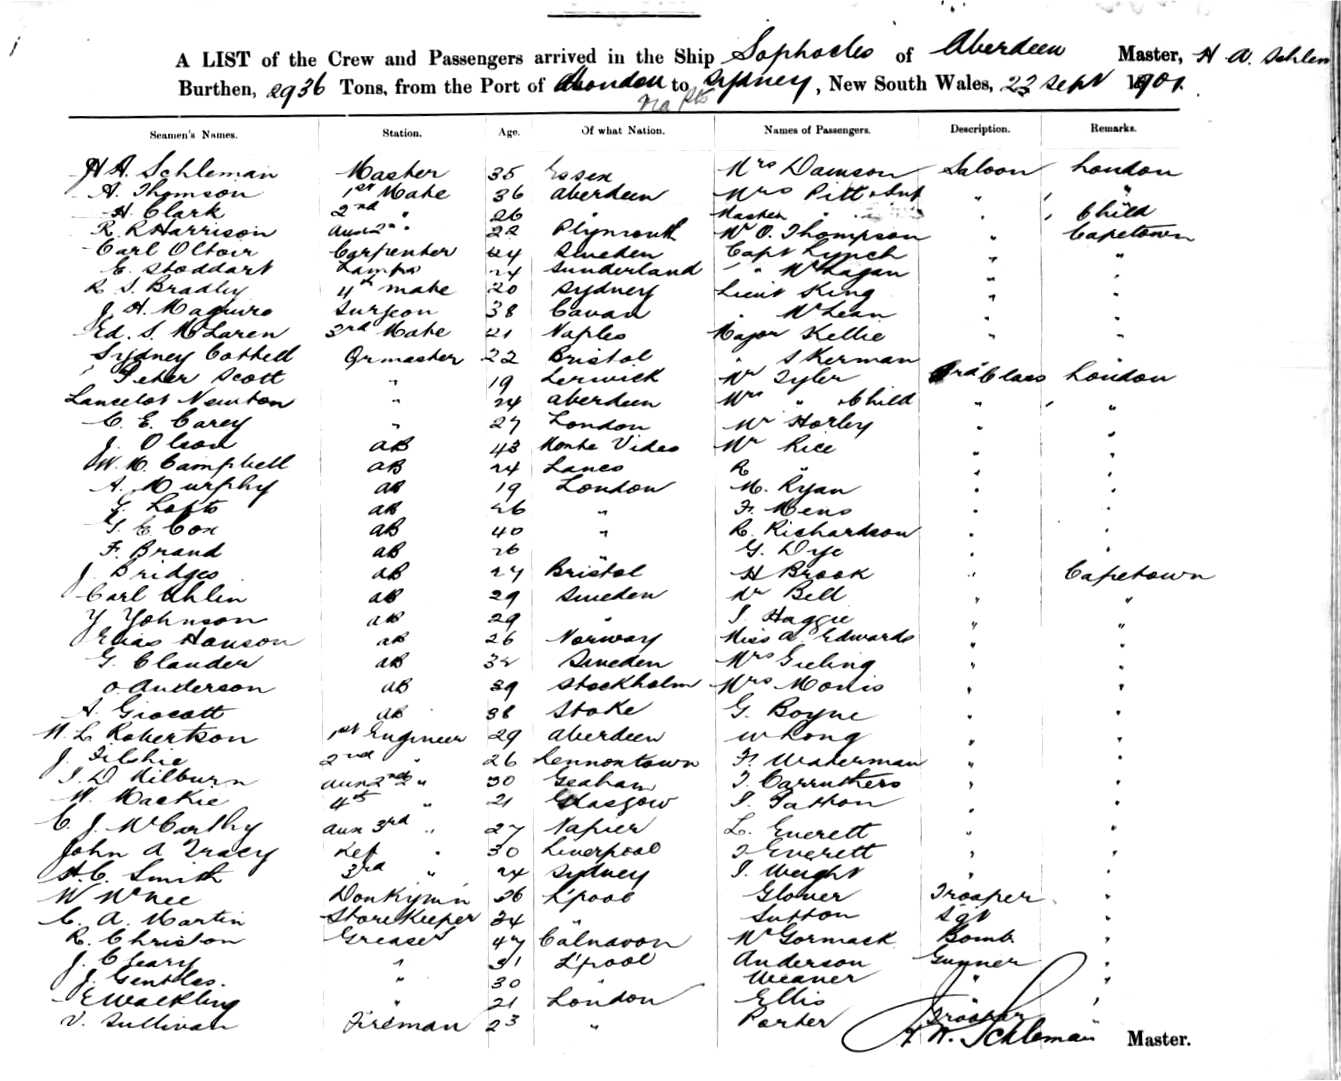 A LIST of the Crew and Passengers arrived in the Ship Sophocles of Aberdeen Master, H A. Schlem
Burthen, 2936 Tons, from the Port of London to Sydney, New South Wales, 22 Sept 1901.
via
Seamen's Names. Station. Age. Of what Nation. Names of Passengers. Description. Remarks.
H A. Schleman Master 35 Essex Mrs Dawson Saloon London
A. Thomson 1st Mate 36 Aberdeen Mrs Pitt " "
H. Clark 2nd " 26 " Master " " Child
R. R Harrison Aux 2nd " 22 Plymouth Mr O. Thompson " Capetown
Carl Oltoir Carpenter 44 Sweden Capt Lynch " "
C. Stoddart Lamps 24 Sunderland " McLagan " "
R. S. Bradley 4th Mate 20 Sydney Lieut King " "
J. H. Maguire Surgeon 38 Cavan " McLean " "
Ed. S. McLaren 3rd Mate 21 Naples Major Kellie " "
Sydney Cottell Qrmaster 22 Bristol " Skerman " "
Peter Scott " 19 Lerwick Mr Tyler 3rd Class London
Lancelot Newton " 24 Aberdeen Mrs " Child " "
C. E. Carey " 27 London Mr Horley " "
J. Olson AB 43 Monte Video Mr Rice " "
W. M. Campbell AB 24 Lancs R " " "
A. Murphy AB 19 London M. Ryan " "
G. Lofts AB 26 " F. Mens " "
G. E Cox AB 40 " R. Richardson " "
F. Brand AB 26 " G. Dye " "
J. Bridges AB 27 Bristol H Brook " Capetown
Carl Uhlin AB 29 Sweden Mr Bell " "
Y Yohnson AB 29 " J. Haggie " "
Elias Hanson AB 26 Norway Miss A. Edwards " "
G. Clauder AB 32 Sweden Mrs Gieling " "
O. Anderson AB 39 Stockholm Mrs Morris " "
A. Grocott AB 38 Stoke G. Boyne " "
W. L. Robertson 1st Engineer 29 Aberdeen W Long " "
J. Filshie 2nd " 26 Lennontown F. Waterman " "
J. D Kilburn Aux 2nd " 30 Seaham J. Carruthers " "
W. Mackie 4th " 21 Glasgow J. Patton " "
C. J. McCarthy Aux 3rd " 27 Napier L. Everett " "
John A Tracy Ref " 30 Liverpool J Everett " "
H. C. Smith 3rd " 24 Sydney J. Weight " "
W McNee Donkeyman 26 L'pool Glover Trooper "
C. A. Martin Storekeeper 34 " Sutton Sgt "
R. Christon Greaser 47 Calnavon McGormack Bomb "
J. Cleary " 31 L'pool Anderson Gunner "
J. Gentles " 30 " Weaver " "
E Wackling " 21 London Ellis " "
V. Sullivan Fireman 23 " Porter Trooper "
H. A. Schleman Master.